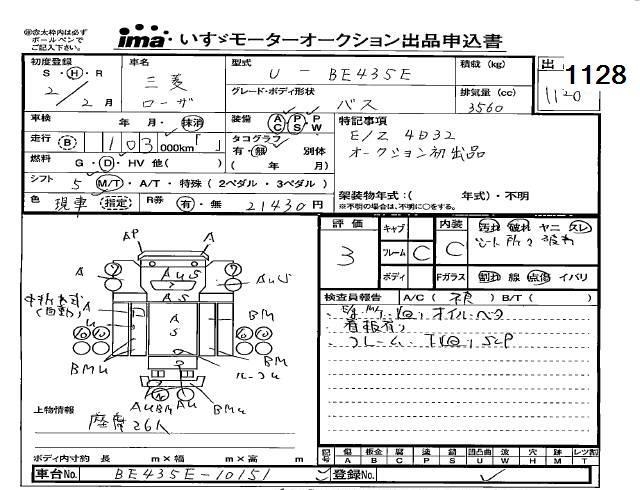 ㊟赤太枠内は必ず
ボールペンで
ご記入下さい。
ima いすゞモーターオークション出品申込書
初度登録
S・H・R
2/2月
車名
三菱
ローザ
型式
U-BE435E
グレード・ボディ形状
バス
積載(kg)
排気量(cc)
3560
出
1120
1128
車検
年 月・抹消
走行 B 103000km「」
燃料 G・D・HV 他( )
シフト 5 M/T・A/T・特殊(2ペダル・3ペダル)
色 現車(指定)
R券 有・無 21430円
装備 AC PS PW
タコグラフ
有・無 別体
( 年 月)
特記事項
E/Z 4D32
オークション初出品
架装物年式:( 年式)・不明
※不明の場合は、不明に○をする。
評価
3
キャブ
フレーム C
ボディ
内装
C
Fガラス
汚れ 破れ ヤニ スレ
割れ 線 点傷 イバリ
検査員報告 A/C( ) B/T( )
オイル
フレーム 下回り
AP
A
A
AUS
AUS
AS
A
S
A
U
(自動)
BM
BM
BMU
AUBM
AU
BMU
上物情報
座席26人
ボディ内寸約 長 m×幅 m×高 m
記号 傷A 板金B 腐C 塗P 錆S 凹凸曲U 波W 穴H 跡M レツ割T
車台No. BE435E-10151
登録No.